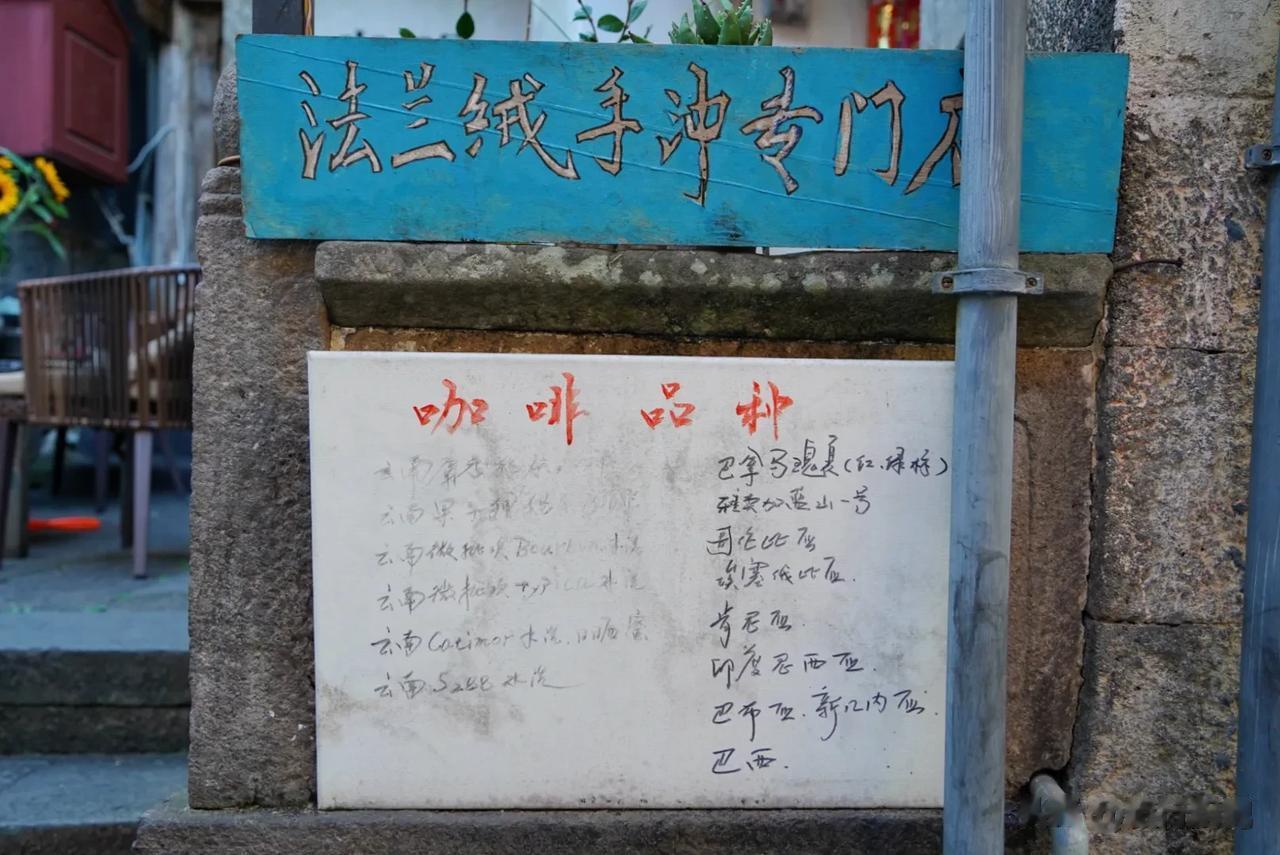 法兰绒手冲专门
咖啡品种
云南
云南果
云南微批次Bourbon水洗
云南微批次typica水洗
云南Catimor水洗.日晒 蜜
云南 水洗
巴拿马瑰夏(红.绿标)
牙买加蓝山一号
哥伦比亚
埃塞俄比亚.
肯尼亚.
印度尼西亚.
巴布亚.新几内亚.
巴西.